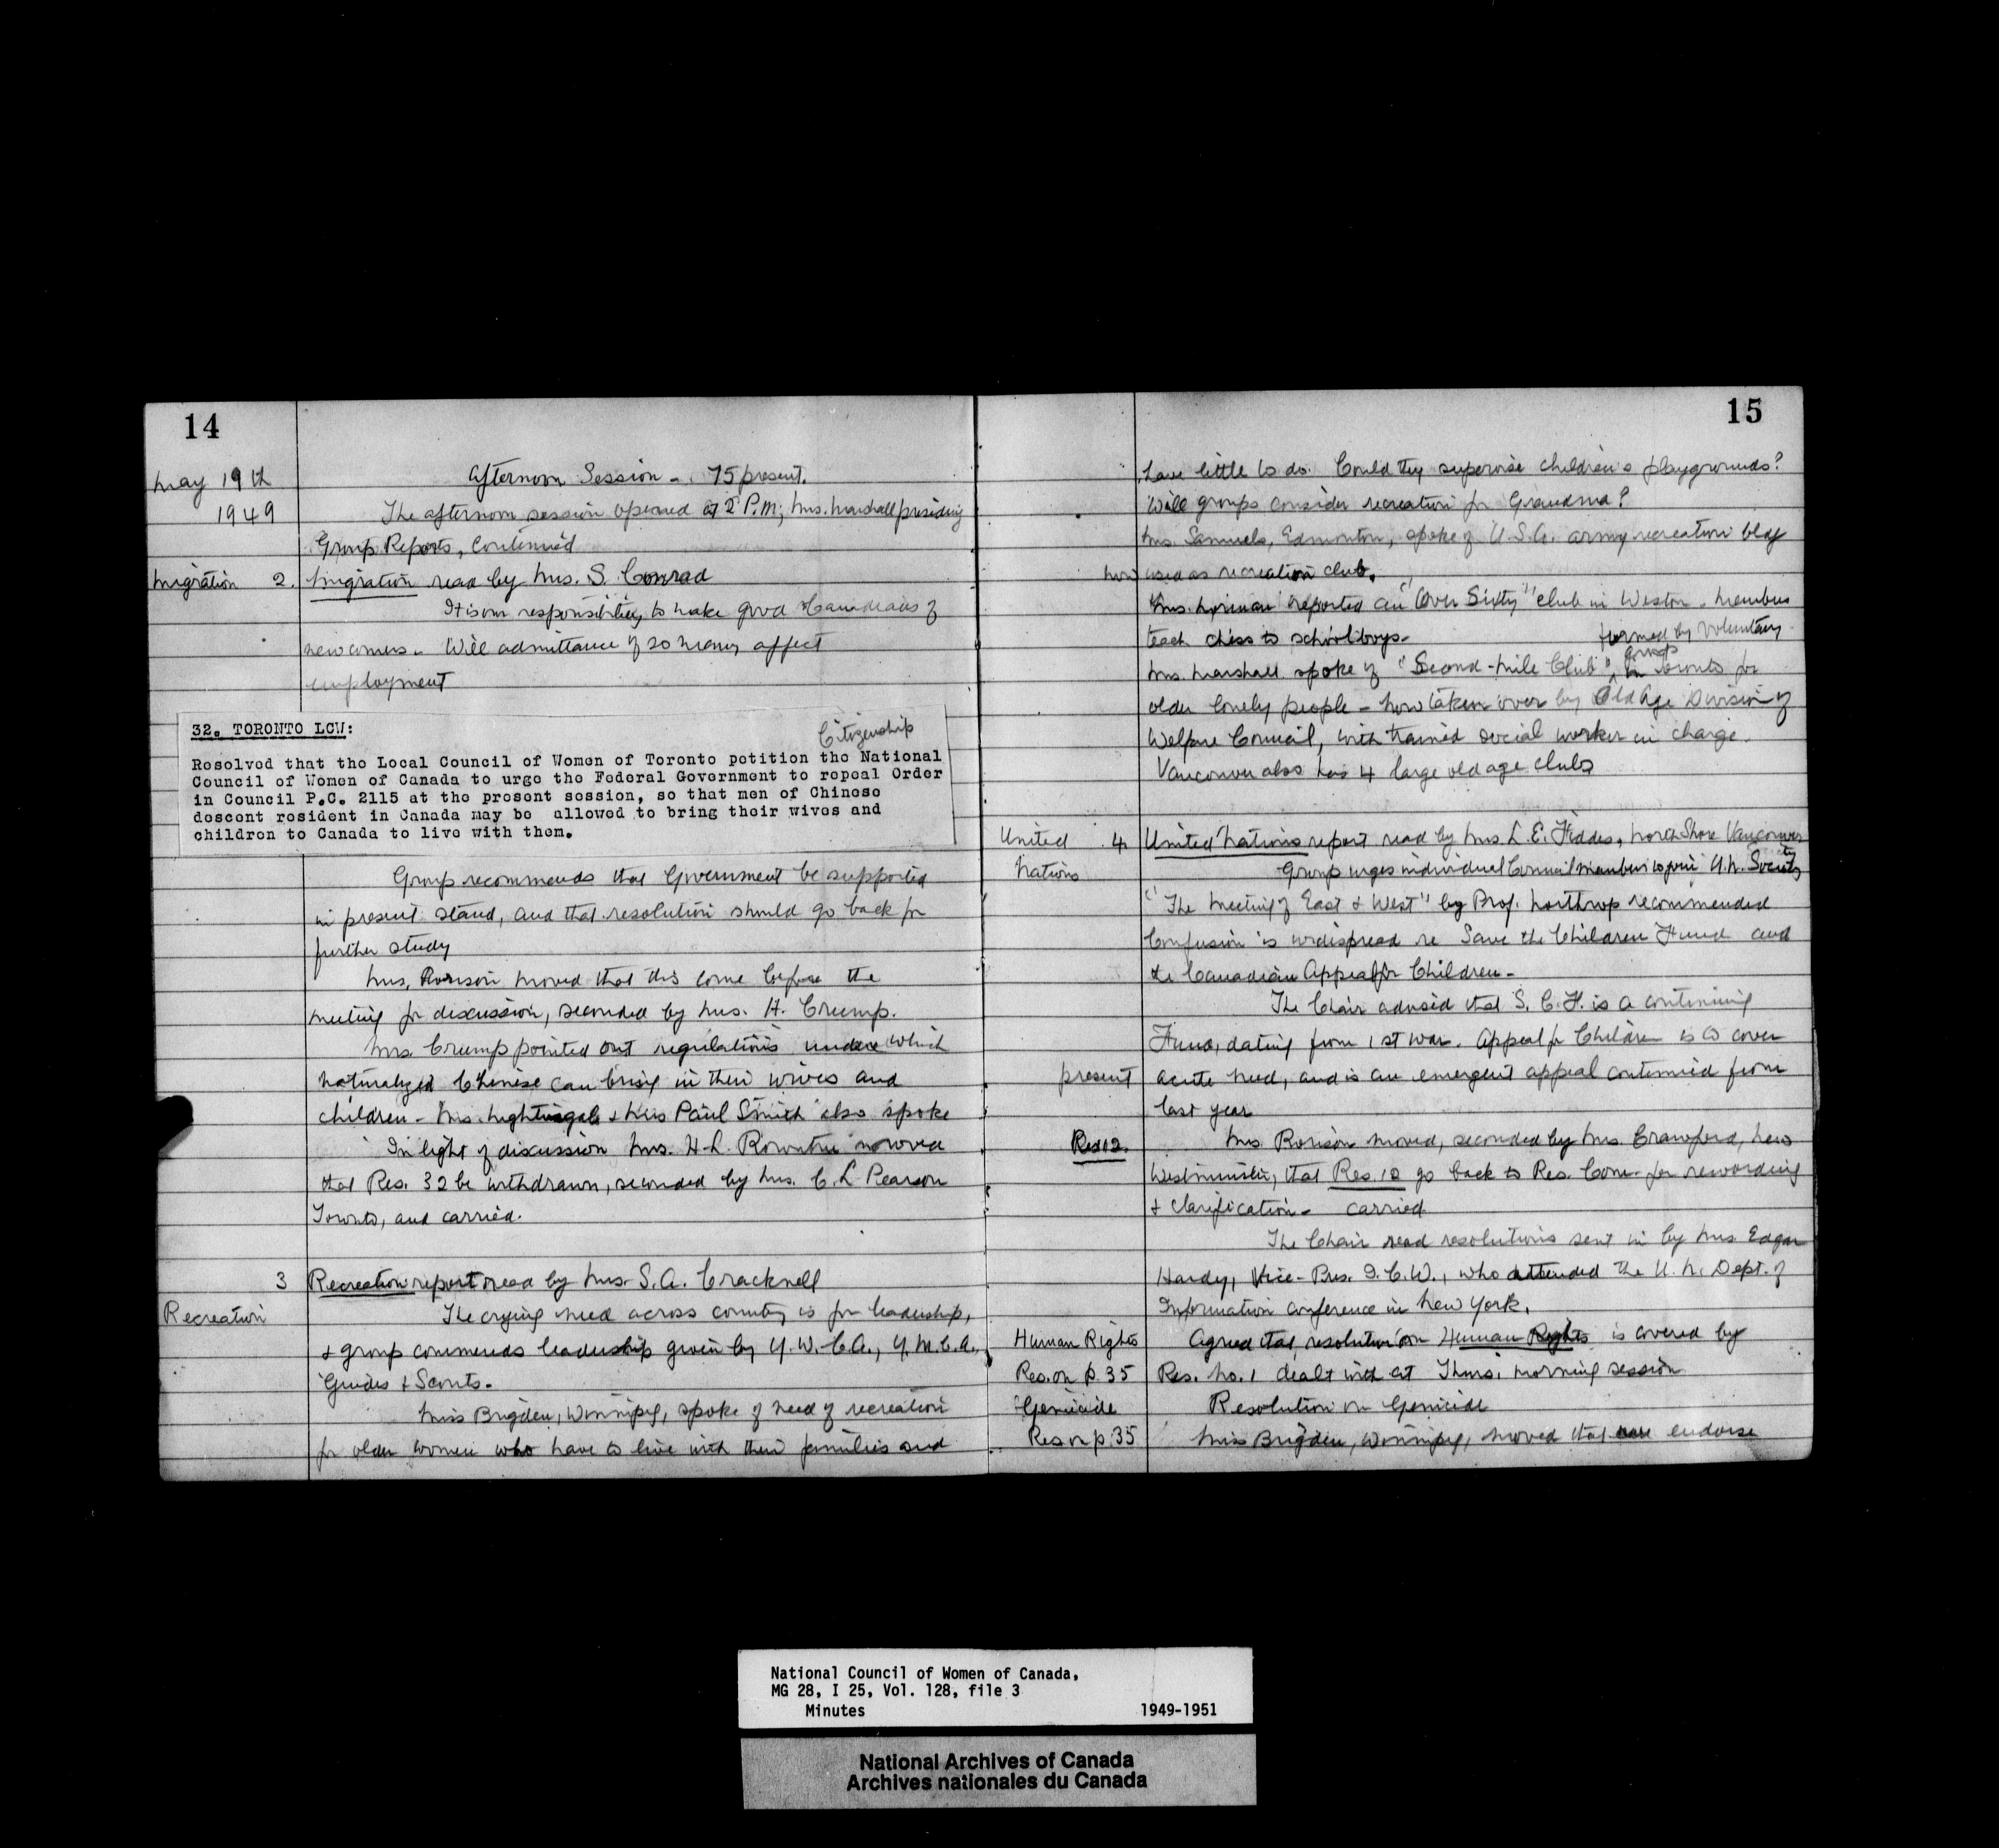 14
May 19th
1949
Afternoon Session - 75 present.
The afternoon session opened at 2 P.M; Mrs. Marshall presiding
Group Reports, Continued
Migration 2. Migration read by Mrs. S. Conrad
It is our responsibility to make good Canadians of
newcomers - Will admittance of so many affect
employment
32. TORONTO LCW:
Citizenship
Resolved that the Local Council of Women of Toronto petition the National
Council of Women of Canada to urge the Federal Government to repeal Order
in Council P.C. 2115 at the present session, so that men of Chinese
descent resident in Canada may be allowed to bring their wives and
children to Canada to live with them.
Group recommends that Government be supported
in present stand, and that resolution should go back for
further study
Mrs. Rorison moved that this come before the
meeting for discussion, seconded by Mrs. H. Crump.
Mrs. Crump pointed out regulations under which
naturalized Chinese can bring in their wives and
children - Mrs. Nightingale & Mrs Paul Smith also spoke
In light of discussion Mrs. H-L. Rowntree moved
that Res. 32 be withdrawn, seconded by Mrs. C. L Pearson
Toronto, and carried.
3 Recreation report read by Mrs. S.A. Cracknell
Recreation
The crying need across country is for leadership,
& group commends leadership given by Y.W.C.A., Y.M.C.A.,
Guides & Scouts.
Miss Brigden, Winnipeg, spoke of need of recreation
for older women who have to live with their families and
15
have little to do. Could they supervise children's playgrounds?
Will groups consider recreation for Grandma?
Mrs. Samuels, Edmonton, spoke of U.S.A. army recreation bldg
now used as recreation club.
Mrs. reported an "Over Sixty" club in Weston. Members
teach chess to schoolboys.
formed by voluntary
group
Mrs. Marshall spoke of "Second-Mile Club", in Toronto for
older lonely people - now taken over by Old Age Division of
Welfare Council, with trained social worker in charge.
Vancouver also has 4 large old age clubs
United 4. United Nations report read by Mrs L.E. Fiddes, North Shore Vancouver
Nations Group urges individual Council members to join U.N. Society
"The Meeting of East & West" by Prof. Northrop recommended
Confusion is widespread re Save the Children Fund and
the Canadian Appeal for Children -
The Chair advised that S.C.F. is a continuing
Fund, dating from 1st war. Appeal for Children is to cover
present acute need, and is an emergent appeal continued from
last year
Res 12. Mrs. Rorison moved, seconded by Mrs. Crawford, New
Westminster, that Res. 12 go back to Res. Com. for rewording
& clarification - carried
The Chair read resolutions sent in by Mrs. Edgar
Hardy, Vice-Pres. I.C.W., who attended the U.N. Dept. of
Information conference in New York.
Human Rights Agreed that resolution on Human Rights is covered by
Res. on p. 35 Res. No. 1 dealt with at Thurs. morning session
Genicide Resolution on Genicide
Res on p 35 Miss Brigden, Winnipeg, moved that we endorse
National Council of Women of Canada,
MG 28, I 25, Vol. 128, file 3
Minutes 1949-1951
National Archives of Canada
Archives nationales du Canada